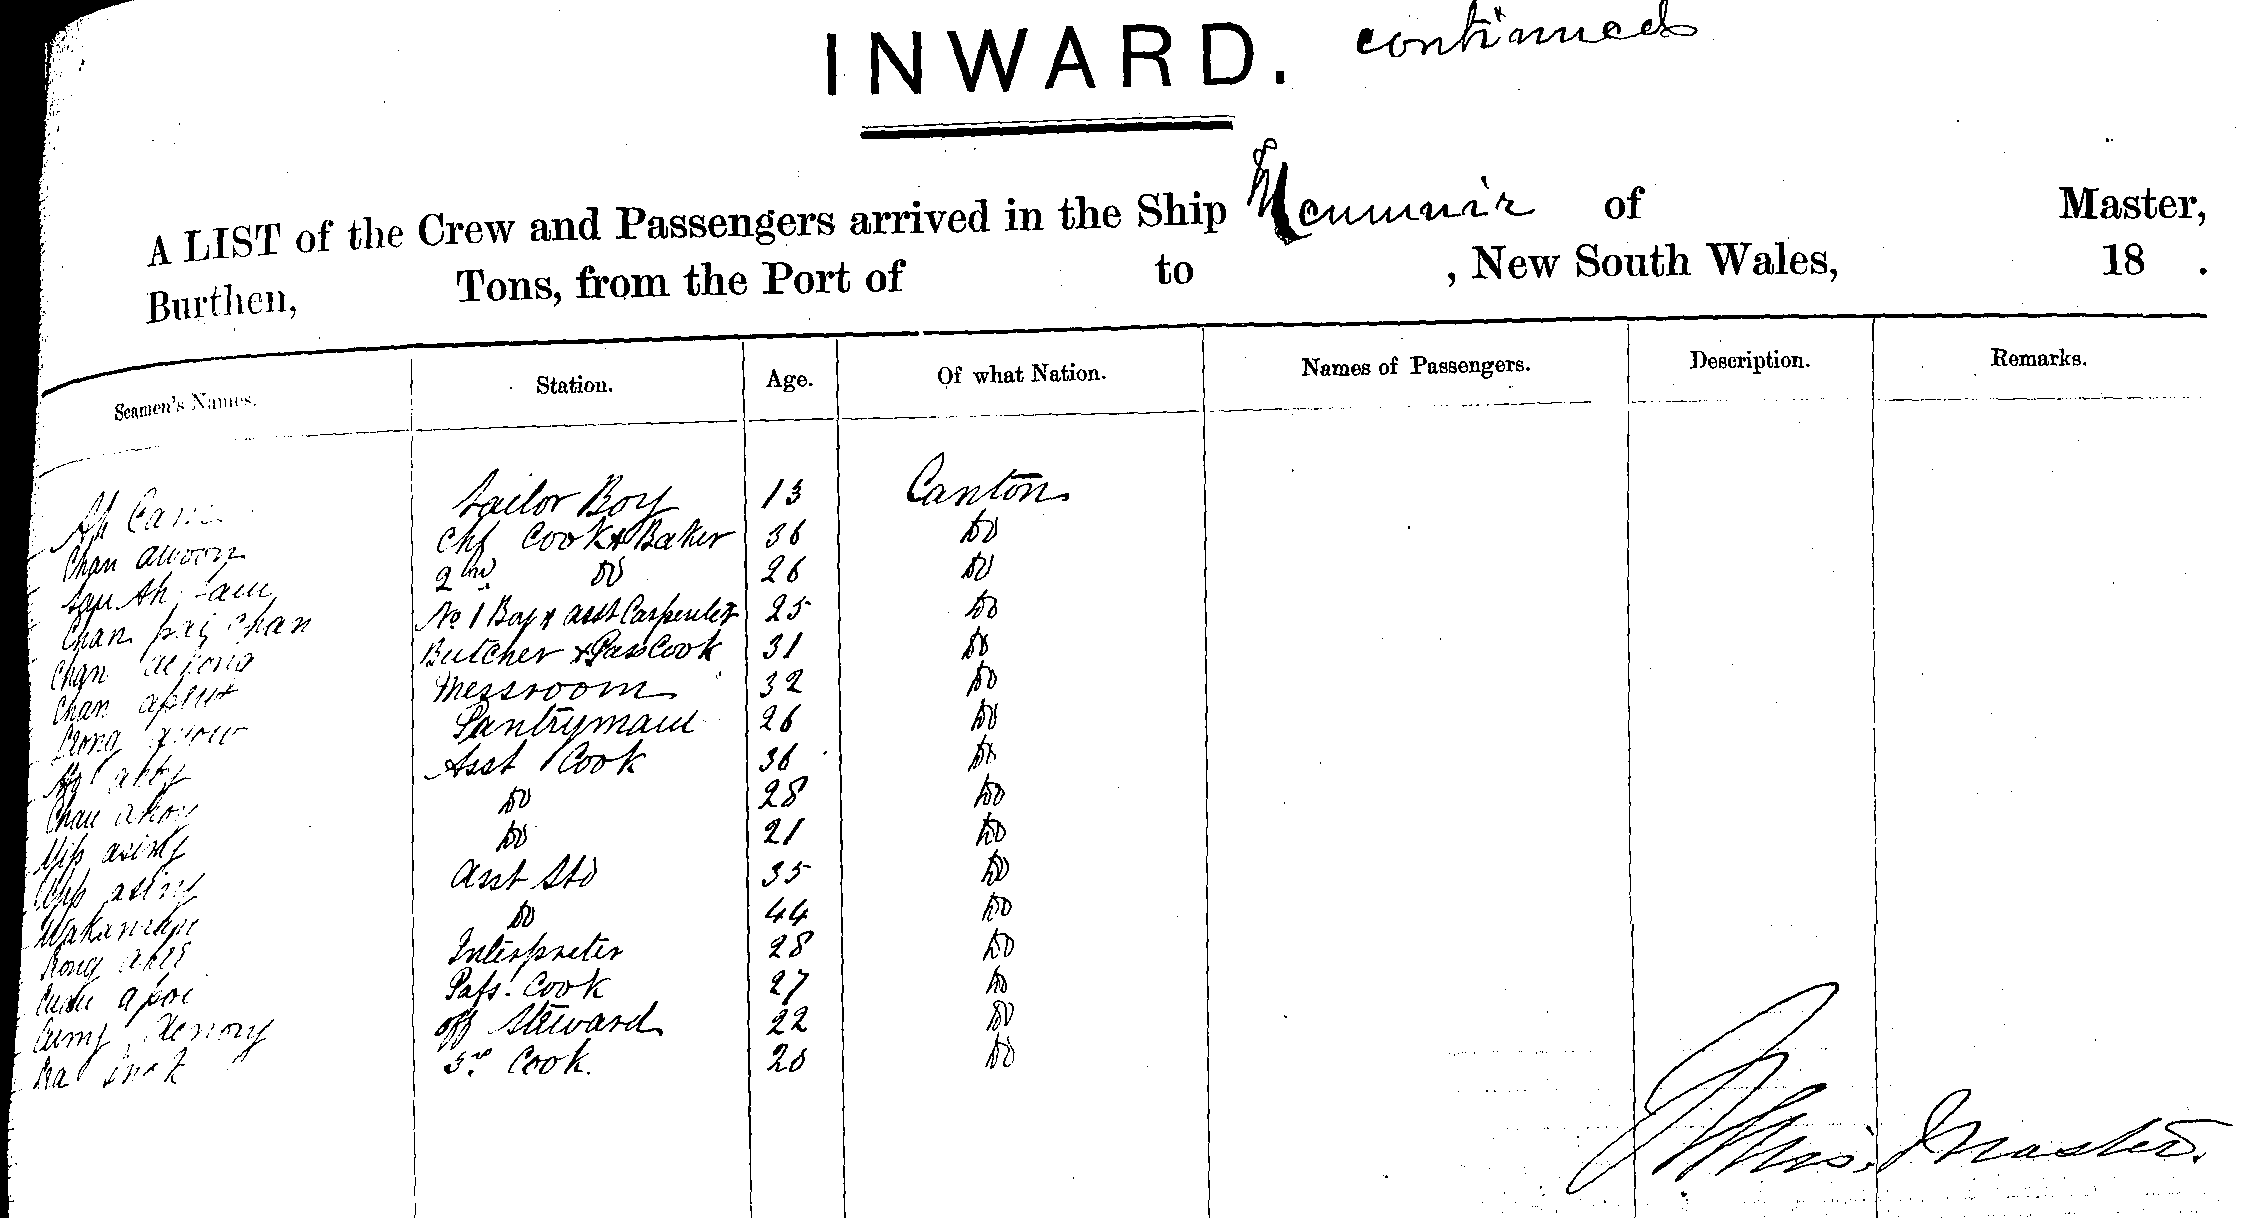 INWARD. continued
A LIST of the Crew and Passengers arrived in the Ship Menmuir of Master,
Burthen, Tons, from the Port of to , New South Wales, 18 .
Seamen's Names. Station. Age. Of what Nation. Names of Passengers. Description. Remarks.
Ah Cam Sailor Boy 13 Canton
Chan awoon Chf Cook & Baker 36 Do
Ah 2nd Do 26 Do
Chan pai Chan No 1 Boy & asst Carpenter 25 Do
Chan Butcher & Pass Cook 31 Do
Chan Messroom 32 Do
Pantryman 26 Do
Asst Cook 36 Do
Chan ahoy Do 28 Do
Yip asing Do 21 Do
Yip asing Asst Std 35 Do
Do 44 Do
Interpreter 28 Do
Pass. Cook 27 Do
off Steward 22 Do
3rd Cook. 20 Do
Master.